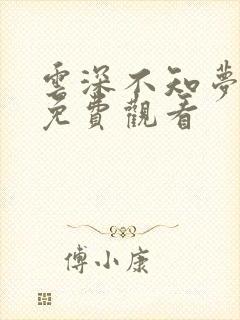 雲深不知夢
免費觀看
傅小康